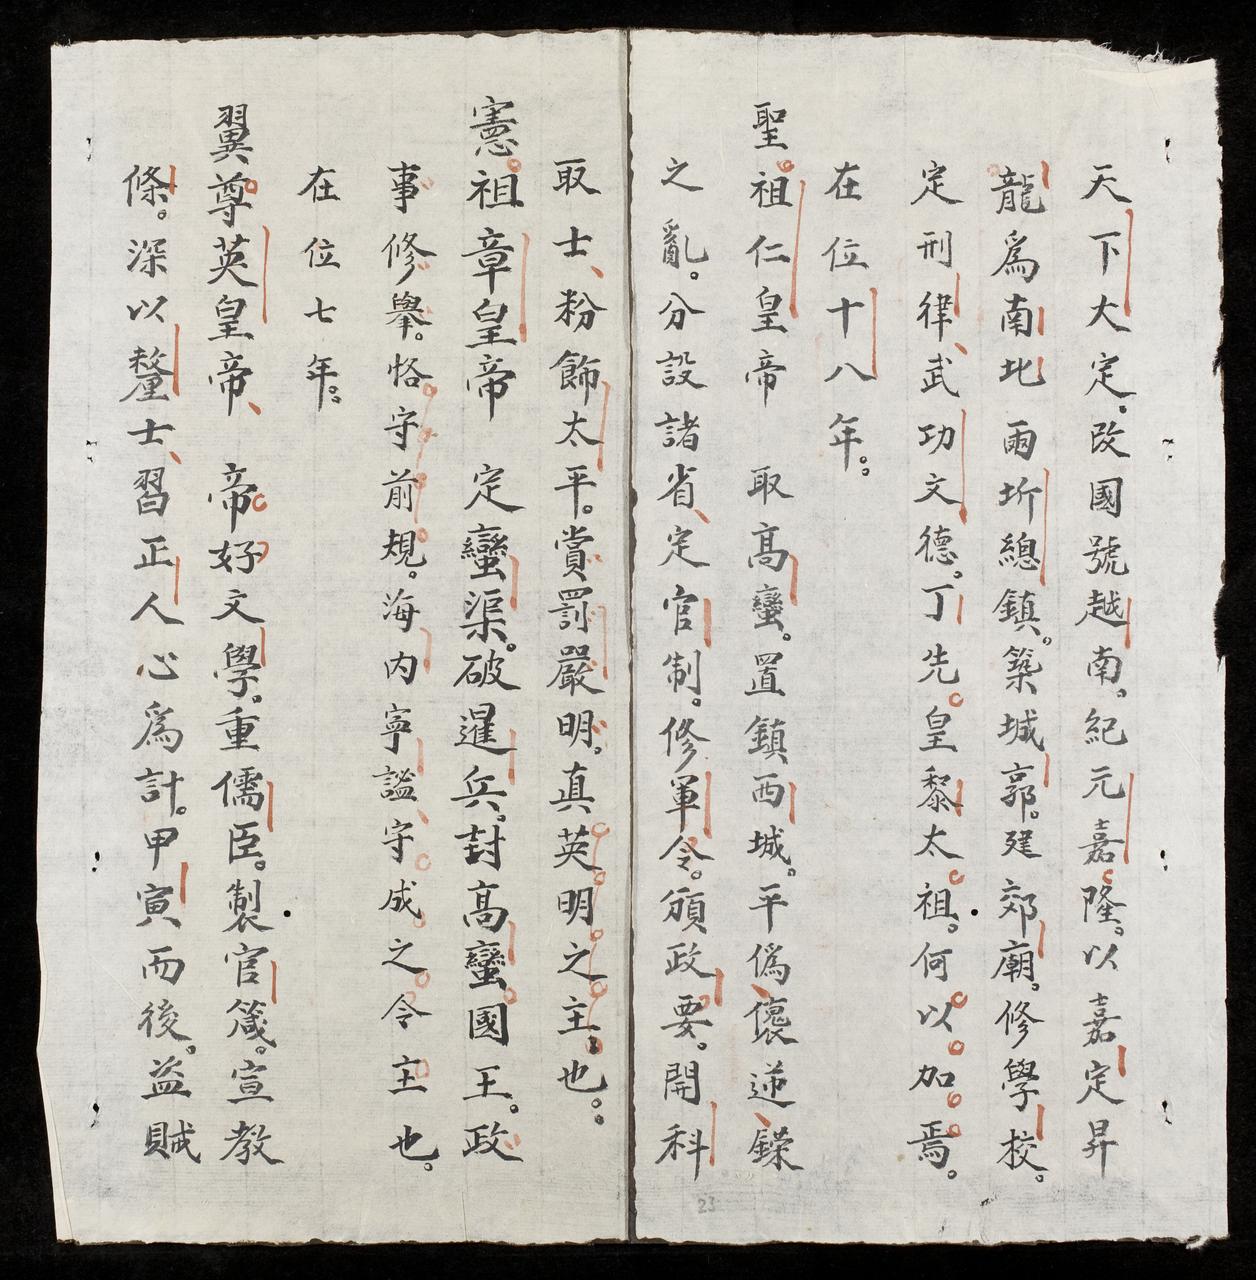 天下大定。改國號越南。紀元嘉隆。以嘉定昇
龍爲南北兩圻總鎮。築城郭。建郊廟。修學校。
定刑律、武功文德。丁先皇黎太祖。何以加焉。
在位十八年。
聖祖仁皇帝 取髙蠻。置鎮西城。平僞儂逆、鐷
之亂。分設諸省、定官制。修軍令。頒政要。開科
取士、粉飾太平。賞罰嚴明。真英明之主也。
憲祖章皇帝 定蠻渠。破暹兵。封髙蠻國王。政
事修舉。恪守前規。海内寧謐、守成之令主也。
在位七年。
翼尊英皇帝、 帝好文學。重儒臣。製官箴。宣教
條。深以釐士、習正人心爲計。甲寅而後。益賊
23